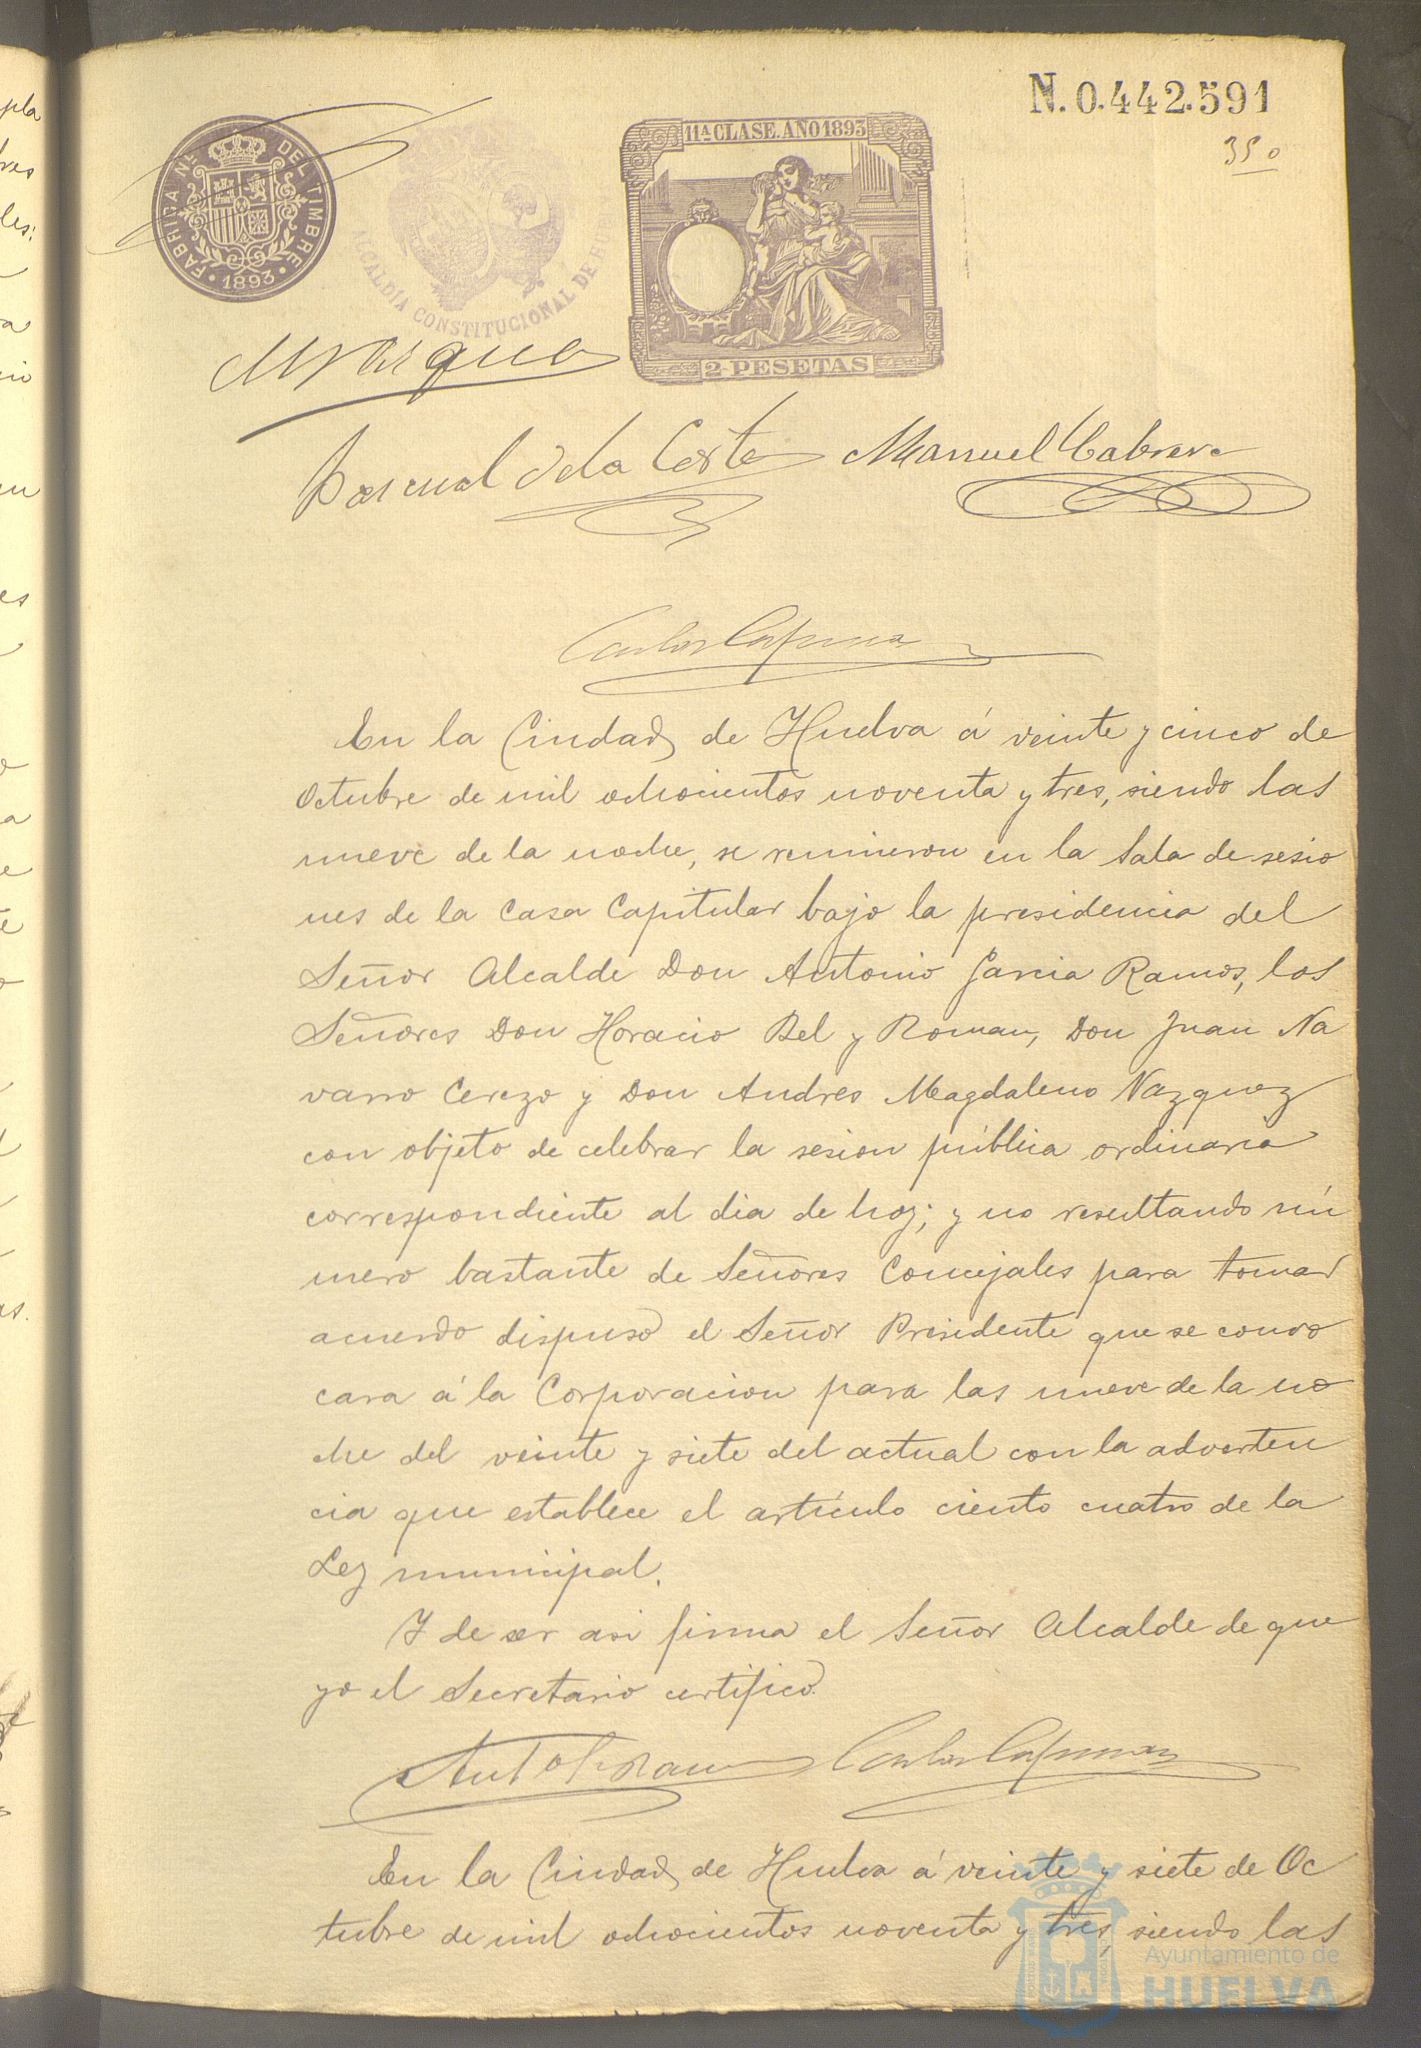 N. 0.442.591
350
FABRICA Nl. DEL TIMBRE
1893
ALCALDÍA CONSTITUCIONAL DE
11ª CLASE. AÑO 1893
2 PESETAS
Pascual de la Corte Manuel Cabrera
En la Ciudad de Huelva á veinte y cinco de
Octubre de mil ochocientos noventa y tres, siendo las
nueve de la noche, se reunieron en la Sala de sesio
nes de la Casa Capitular bajo la presidencia del
Señor Alcalde Don Antonio Garcia Ramos, los
Señores Don Horacio Bel y Roman, Don Juan Na
varro Cerezo y Don Andres Magdaleno Vazquez
con objeto de celebrar la sesion pública ordinaria
correspondiente al dia de hoy; y no resultando nú
mero bastante de Señores Concejales para tomar
acuerdo dispuso el Señor Presidente que se convo
cara á la Corporacion para las nueve de la no
che del veinte y siete del actual con la adverten
cia que establece el artículo ciento cuatro de la
Ley municipal.
Y de ser asi firma el Señor Alcalde de que
yo el Secretario certifico.
En la Ciudad de Huelva á veinte y siete de Oc
tubre de mil ochocientos noventa y tres, siendo las
Ayuntamiento de
HUELVA